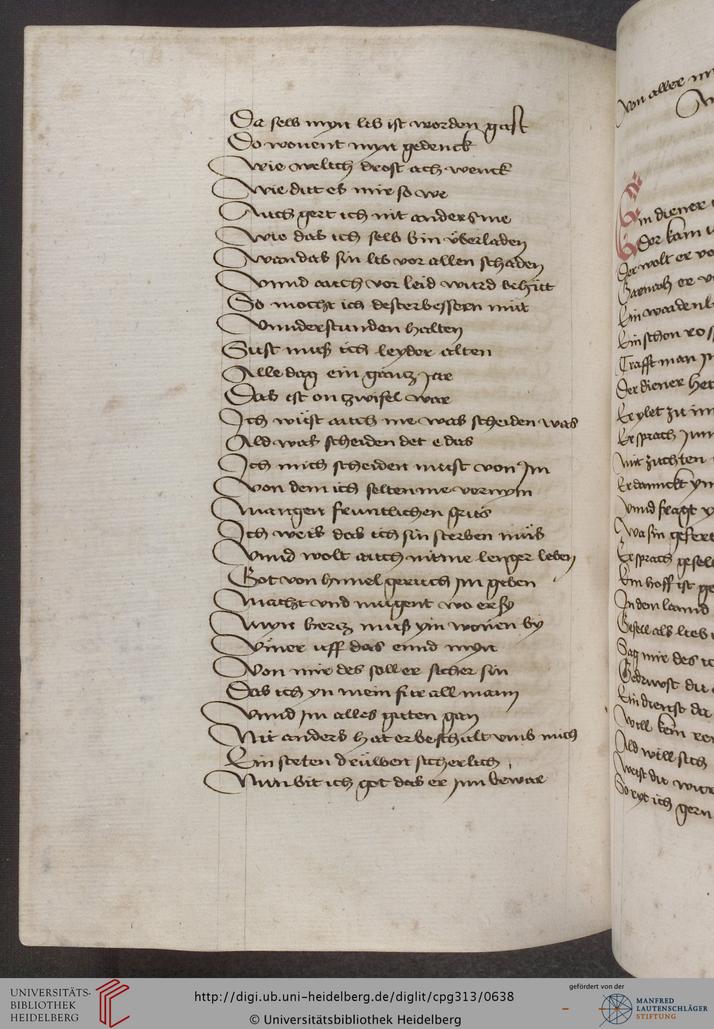 Da selb myn lib ist worden gast
Do wonent myn gedenck
Wie welich drost ach wenck
Wie dut es mir so we
Auch gert ich nit anders me
Wie das ich selb bin überladen
Wan das sin lib vor allen schaden
Vnnd auch vor leid wurd behüt
So mocht ich dester bessern mut
Vnnder stunden halten
Sust muß ich leyder alten
Alle dag ein gantz Jar
Das ist on zwifel war
Ich wust auch nie was scheiden was
Ald was scheiden det e das
Ich mich scheiden must von Im
Von dem ich selten me vernym
Mangen fruntlichen gruß
Ich weis das ich sin sterben muß
Vnnd wolt auch nit me lenger leben
Got von himel geruch Im geben
Macht vnd mugent wo er sy
Myn hertz muß ym wonen by
Ymer uff das ennd myn
Von mir des soll er sicher sin
Das ich yn mein fur all mann
Vnnd Im alles guten gan
Nit anders hat er beschalt vmb mich
Ein steten drüwen sicherlich
Nun bit ich got das er Inn bewar
Von aller
Ein diener
Der kam
Der wolt er
Ein
Ein schon ros
Trafft man In
Der diener het
Er ylet zu im
Er sprach Jun
Mit zuchten
Er danckt yn
Vnnd fragt
Wa sin gefert
Er sprach gesel
Ein hoff ist ge
In den lannd
Gesell als lieb
Sag mir des
Ein dienst
Well kein
Ald will sich
Weist du
So ryt ich gern
UNIVERSITÄTS-
BIBLIOTHEK
HEIDELBERG
http://digi.ub.uni-heidelberg.de/diglit/cpg313/0638
© Universitätsbibliothek Heidelberg
gefördert von der
MANFRED
LAUTENSCHLÄGER
STIFTUNG